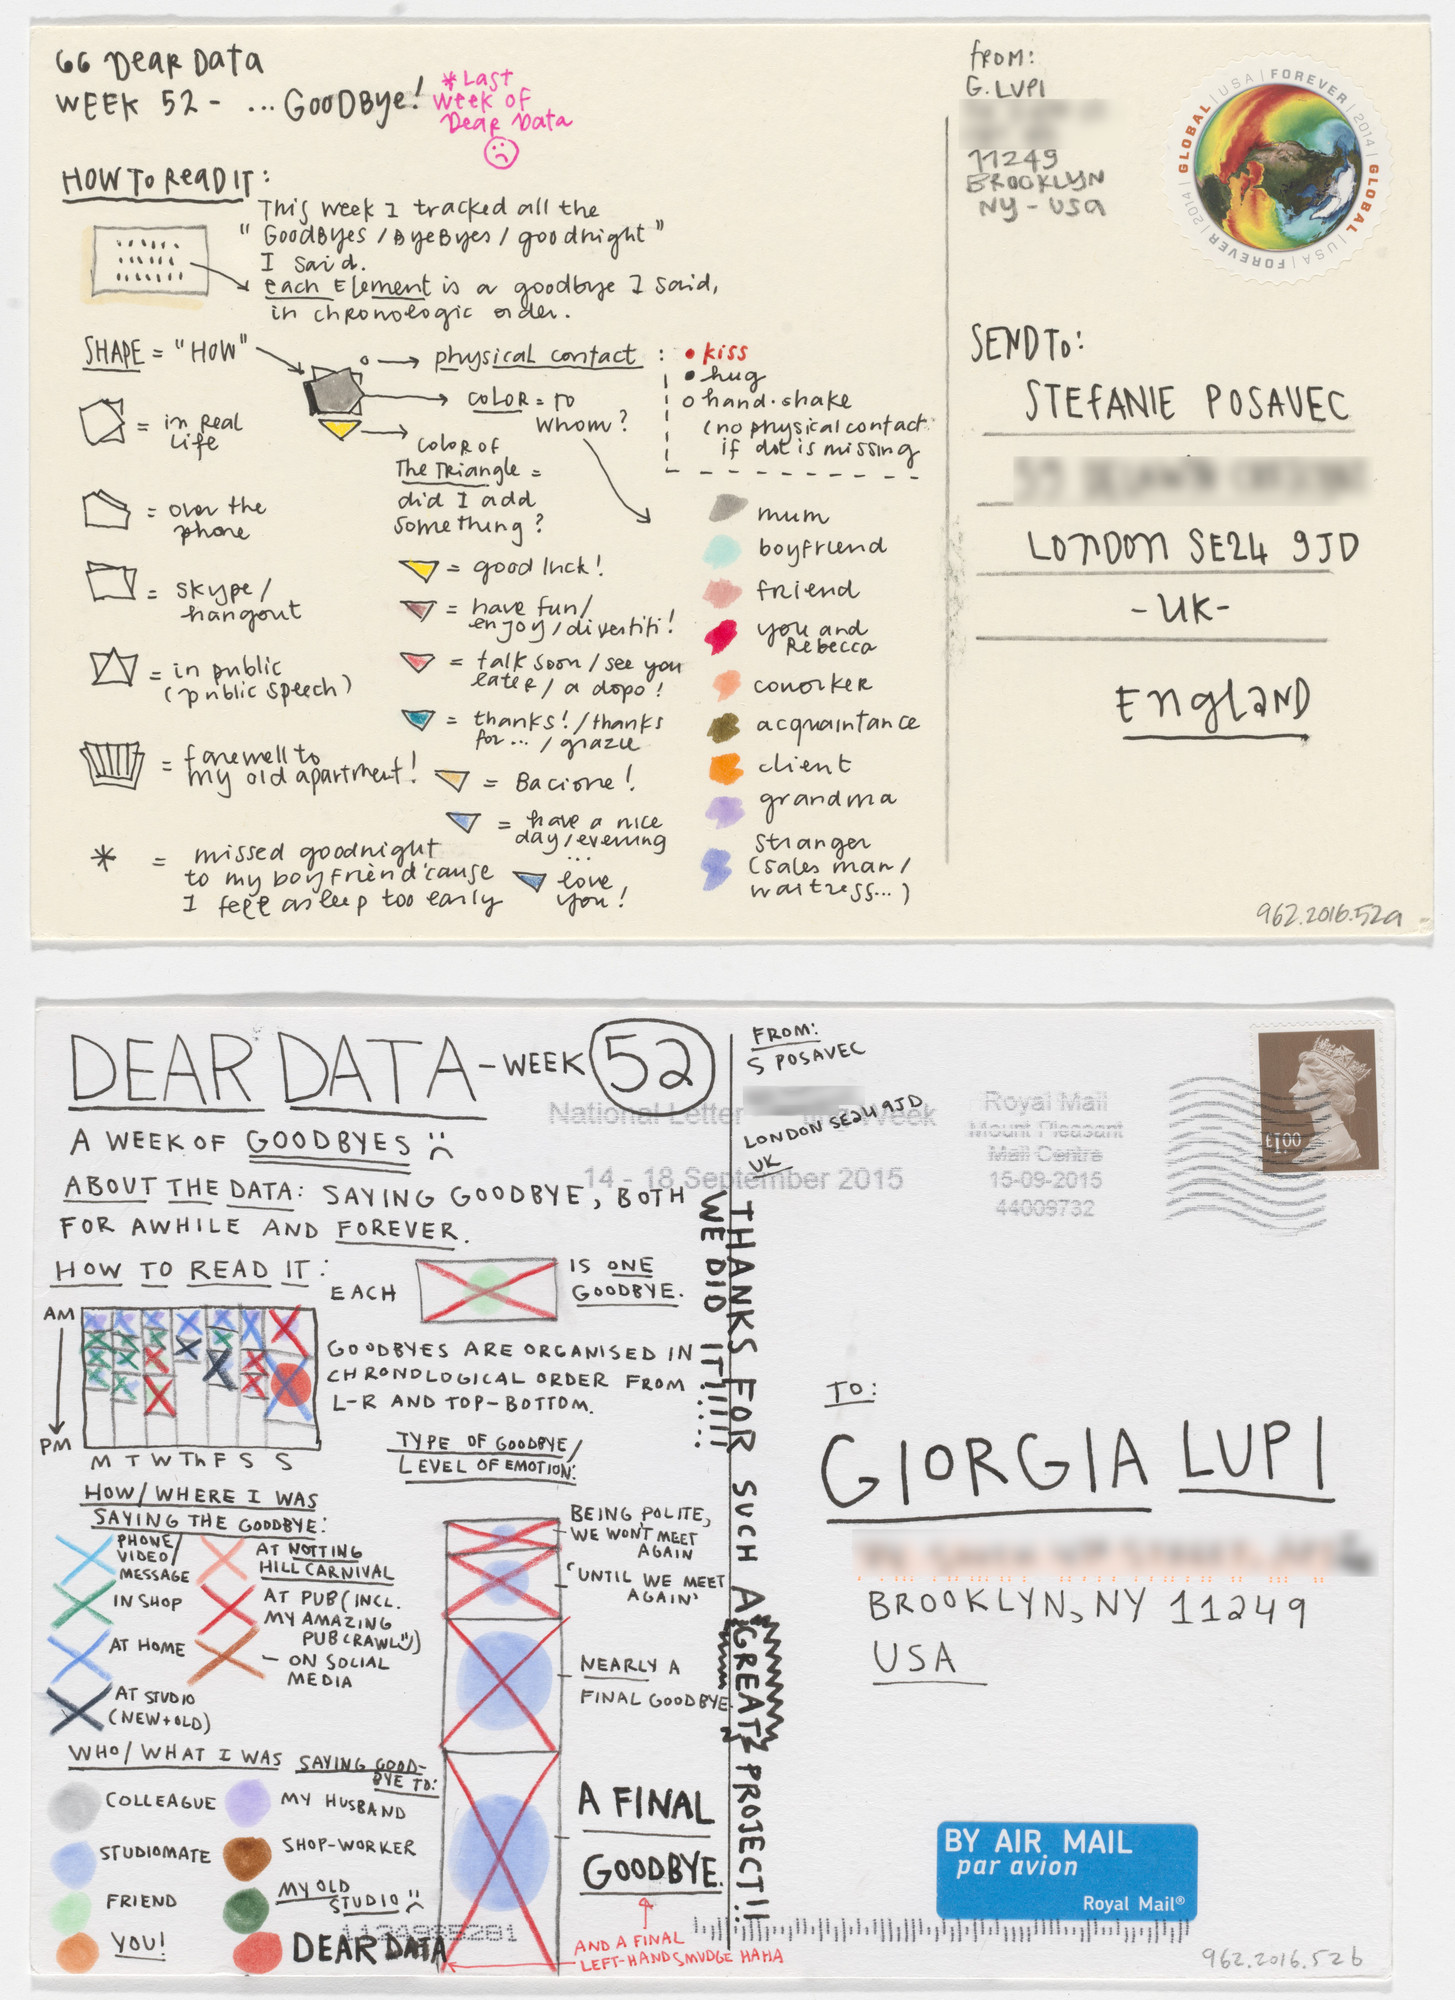 GG DEAR DATA
WEEK 52 - ... GOODBYE!
*Last
week of
Dear Data
HOW TO READ IT:
This week I tracked all the
"Goodbyes / ByeByes / goodnight"
I said.
each Element is a goodbye I said,
in chronologic order.
SHAPE = "HOW"
physical contact :
kiss
hug
hand.shake
(no physical contact
if dot is missing
COLOR = TO
WHOM?
COLOR OF
THE TRIANGLE =
did I add
something?
= in Real
Life
= over the
phone
= skype/
hangout
= in public
(public speech)
= farewell to
my old apartment!
* = missed goodnight
to my boyfriend 'cause
I fell asleep too early
= good luck!
= have fun/
enjoy/divertiti!
= talk soon/see you
later/a dopo!
= thanks!/thanks
for.../grazie
= Bacione!
= have a nice
day/evening
...
love
you!
mum
boyfriend
friend
you and
Rebecca
coworker
acquaintance
client
grandma
stranger
(sales man/
waitress...)
FROM:
G. LUPI
11249
BROOKLYN
NY - USA
GLOBAL | USA | FOREVER | 2014 | GLOBAL | USA | FOREVER | 2014 |
SEND TO:
STEFANIE POSAVEC
LONDON SE24 9JD
- UK -
ENGLAND
962.2016.52a
DEAR DATA - WEEK 52
A WEEK OF GOODBYES
ABOUT THE DATA: SAYING GOODBYE, BOTH
FOR AWHILE AND FOREVER.
HOW TO READ IT:
EACH
IS ONE
GOODBYE.
AM
PM
M T W Th F S S
GOODBYES ARE ORGANISED IN
CHRONOLOGICAL ORDER FROM
L-R AND TOP-BOTTOM.
TYPE OF GOODBYE/
LEVEL OF EMOTION:
BEING POLITE,
WE WON'T MEET
AGAIN
'UNTIL WE MEET
AGAIN'
NEARLY A
FINAL GOODBYE
A FINAL
GOODBYE.
AND A FINAL
LEFT-HAND SMUDGE HAHA
HOW/WHERE I WAS
SAYING THE GOODBYE:
PHONE/
VIDEO/
MESSAGE
IN SHOP
AT HOME
AT STUDIO
(NEW+OLD)
AT NOTTING
HILL CARNIVAL
AT PUB (INCL.
MY AMAZING
PUB CRAWL)
- ON SOCIAL
MEDIA
WHO/WHAT I WAS SAYING GOOD-
BYE TO:
COLLEAGUE
STUDIOMATE
FRIEND
YOU!
MY HUSBAND
SHOP-WORKER
MY OLD
STUDIO
DEAR DATA
THANKS FOR SUCH A GREAT PROJECT!!
WE DID IT!!!!!
FROM:
S POSAVEC
LONDON SE24 9JD
UK
National Letter
Week
14 - 18 September 2015
Royal Mail
Mount Pleasant
Mail Centre
15-09-2015
44009732
£1.00
TO:
GIORGIA LUPI
BROOKLYN, NY 11249
USA
BY AIR MAIL
par avion
Royal Mail®
962.2016.52b